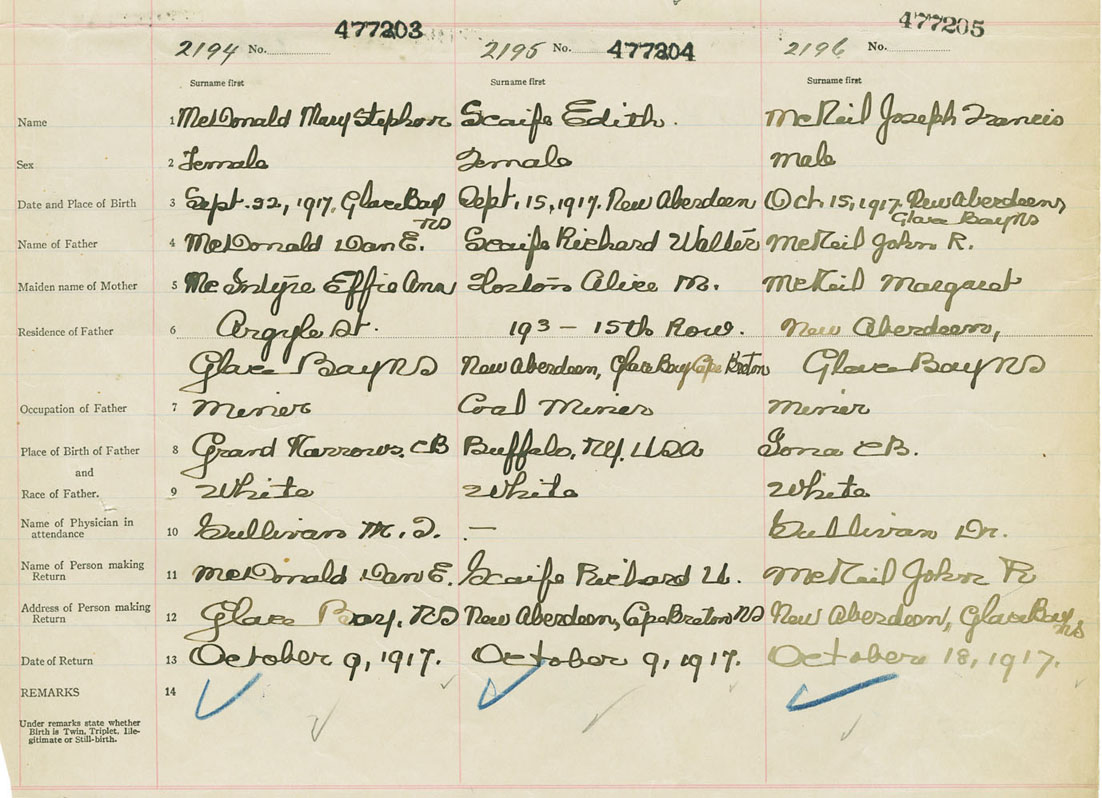 477203 477204 477205
2194 No. 2195 No. 2196 No.
Surname first Surname first Surname first
Name 1 McDonald Mary Scaife Edith. McNeil Joseph Francis
Sex 2 Female Female Male
Date and Place of Birth 3 Sept. 22, 1917, Glace Bay Sept. 15, 1917. New Aberdeen Oct. 15, 1917. New Aberdeen,
NS Glace Bay NS
Name of Father 4 McDonald Dan E. Scaife Richard Walter McNeil John R.
Maiden name of Mother 5 McIntyre Effie Ann Alice M. McNeil Margaret
Residence of Father 6 Argyle St. 193 – 15th Row. New Aberdeen,
Glace Bay NS New Aberdeen, Glace Bay Cape Breton Glace Bay NS
Occupation of Father 7 Miner Coal Miner Miner
Place of Birth of Father 8 Grand Narrows, CB Buffalo, NY. USA Iona CB.
and
Race of Father. 9 White White White
Name of Physician in
attendance 10 Sullivan M. T. — Sullivan Dr.
Name of Person making
Return 11 McDonald Dan E. Scaife Richard W. McNeil John R
Address of Person making
Return 12 Glace Bay, NS New Aberdeen, Cape Breton NS New Aberdeen, Glace Bay
NS
Date of Return 13 October 9, 1917. October 9, 1917. October 18, 1917.
REMARKS 14
Under remarks state whether
Birth is Twin, Triplet, Ille-
gitimate or Still-birth.